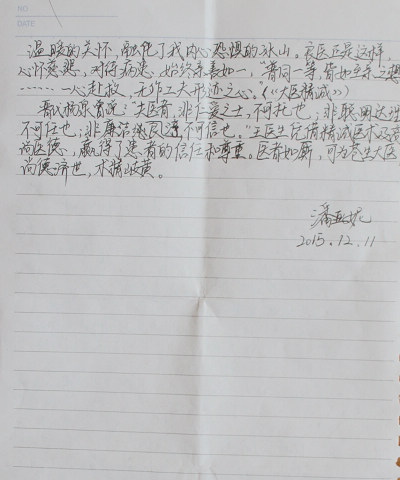 NO.
DATE
温暖的关怀,融化了我内心恐惧的冰山。良医正是这样,
心怀慈悲,对待病患始终亲善如一,"普同一等,皆如至亲之想
…………一心赴救,无作工夫形迹之心。(《大医精诚》)
晋代杨泉曾说:"夫医者,非仁爱之士,不可托也;非聪明达理
不可任也;非廉洁淳良,不可信也。"王医生凭借精诚医术及高
尚医德,赢得了患者的信任和尊重。医者如斯,可为苍生大医
尚德济世,术精岐黄。
2015.12.11